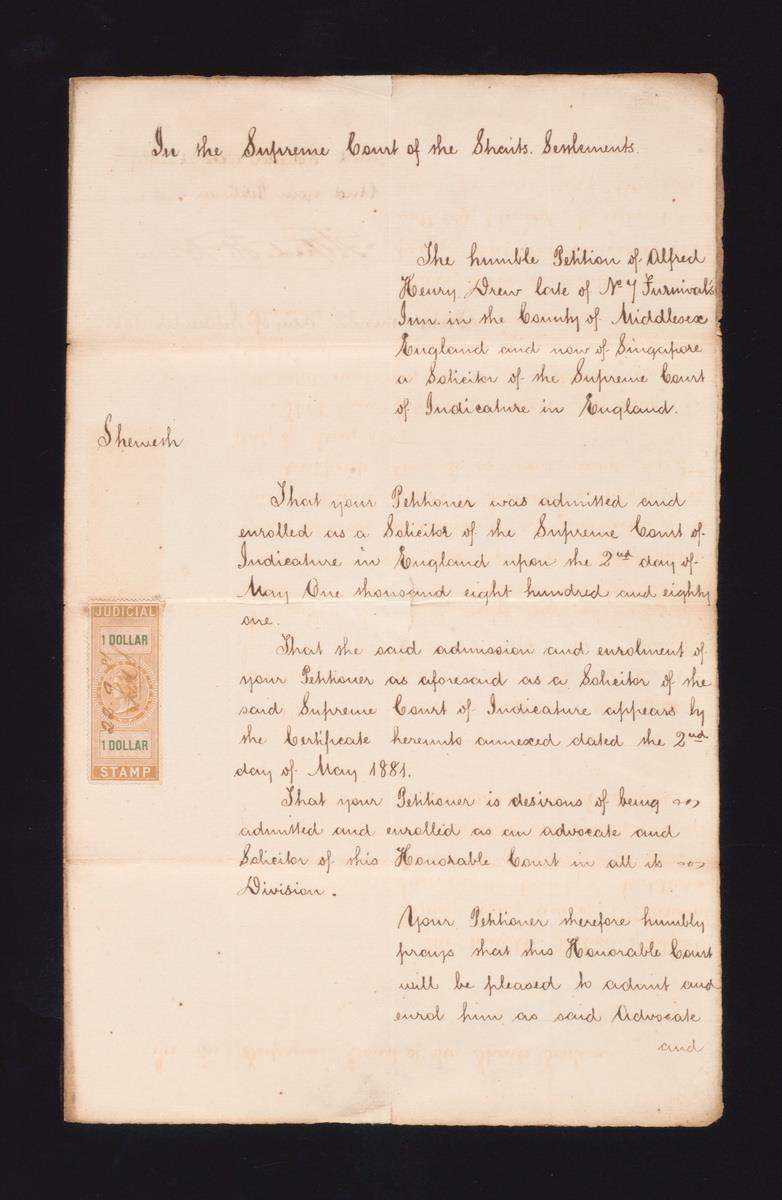 In the Supreme Court of the Straits Settlements.
The humble Petition of Alfred
Henry Drew late of No 7 Furnival's
Inn in the County of Middlesex
England and now of Singapore
a Solicitor of the Supreme Court
of Judicature in England.
Sheweth
That your Petitioner was admitted and
enrolled as a Solicitor of the Supreme Court of
Judicature in England upon the 2nd day of
May One thousand eight hundred and eighty
one.
That the said admission and enrolment of
your Petitioner as aforesaid as a Solicitor of the
said Supreme Court of Judicature appears by
the Certificate hereunto annexed dated the 2nd
day of May 1881.
That your Petitioner is desirous of being
admitted and enrolled as an advocate and
Solicitor of this Honorable Court in all its
Division.
Your Petitioner therefore humbly
prays that this Honorable Court
will be pleased to admit and
enrol him as said Advocate
and
JUDICIAL
1 DOLLAR
1 DOLLAR
STAMP